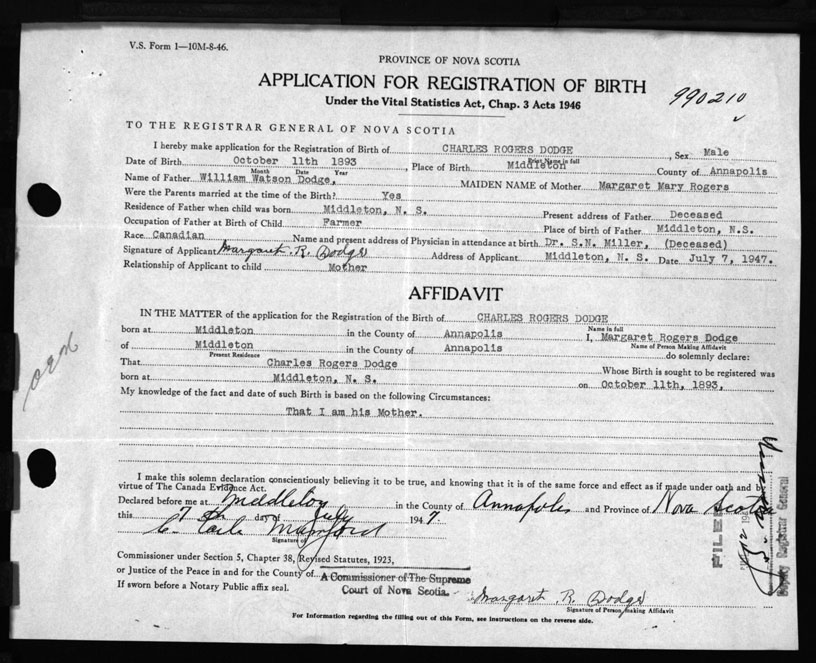 V.S. Form 1—10M-8-46.
PROVINCE OF NOVA SCOTIA
APPLICATION FOR REGISTRATION OF BIRTH
990210
Under the Vital Statistics Act, Chap. 3 Acts 1946
TO THE REGISTRAR GENERAL OF NOVA SCOTIA
I hereby make application for the Registration of Birth of CHARLES ROGERS DODGE, Sex Male
Print Name in full
Date of Birth October 11th 1893, Place of Birth Middleton County of Annapolis
Month Date Year
Name of Father William Watson Dodge, MAIDEN NAME of Mother Margaret Mary Rogers
Were the Parents married at the time of the Birth? Yes
Residence of Father when child was born Middleton, N. S. Present address of Father Deceased
Occupation of Father at Birth of Child Farmer Place of birth of Father Middleton, N.S.
Race Canadian Name and present address of Physician in attendance at birth Dr. S.N. Miller, (Deceased)
Signature of Applicant Margaret R. Dodge Address of Applicant Middleton, N. S. Date July 7, 1947.
Relationship of Applicant to child Mother
AFFIDAVIT
IN THE MATTER of the application for the Registration of the Birth of CHARLES ROGERS DODGE
Name in full
born at Middleton in the County of Annapolis I, Margaret Rogers Dodge
Name of Person Making Affidavit
of Middleton in the County of Annapolis do solemnly declare:
Present Residence
That Charles Rogers Dodge Whose Birth is sought to be registered was
born at Middleton, N. S. on October 11th, 1893,
My knowledge of the fact and date of such Birth is based on the following Circumstances:
That I am his Mother.
I make this solemn declaration conscientiously believing it to be true, and knowing that it is of the same force and effect as if made under oath and by
virtue of The Canada Evidence Act.
Declared before me at Middleton in the County of Annapolis and Province of Nova Scotia
this 7th day of July 1947.
Signature of
Commissioner under Section 5, Chapter 38, Revised Statutes, 1923,
or Justice of the Peace in and for the County of
A Commissioner of The Supreme
Court of Nova Scotia.
If sworn before a Notary Public affix seal.
Margaret R. Dodge
Signature of Person making Affidavit
For Information regarding the filling out of this Form, see instructions on the reverse side.
FILED
Deputy Registrar General